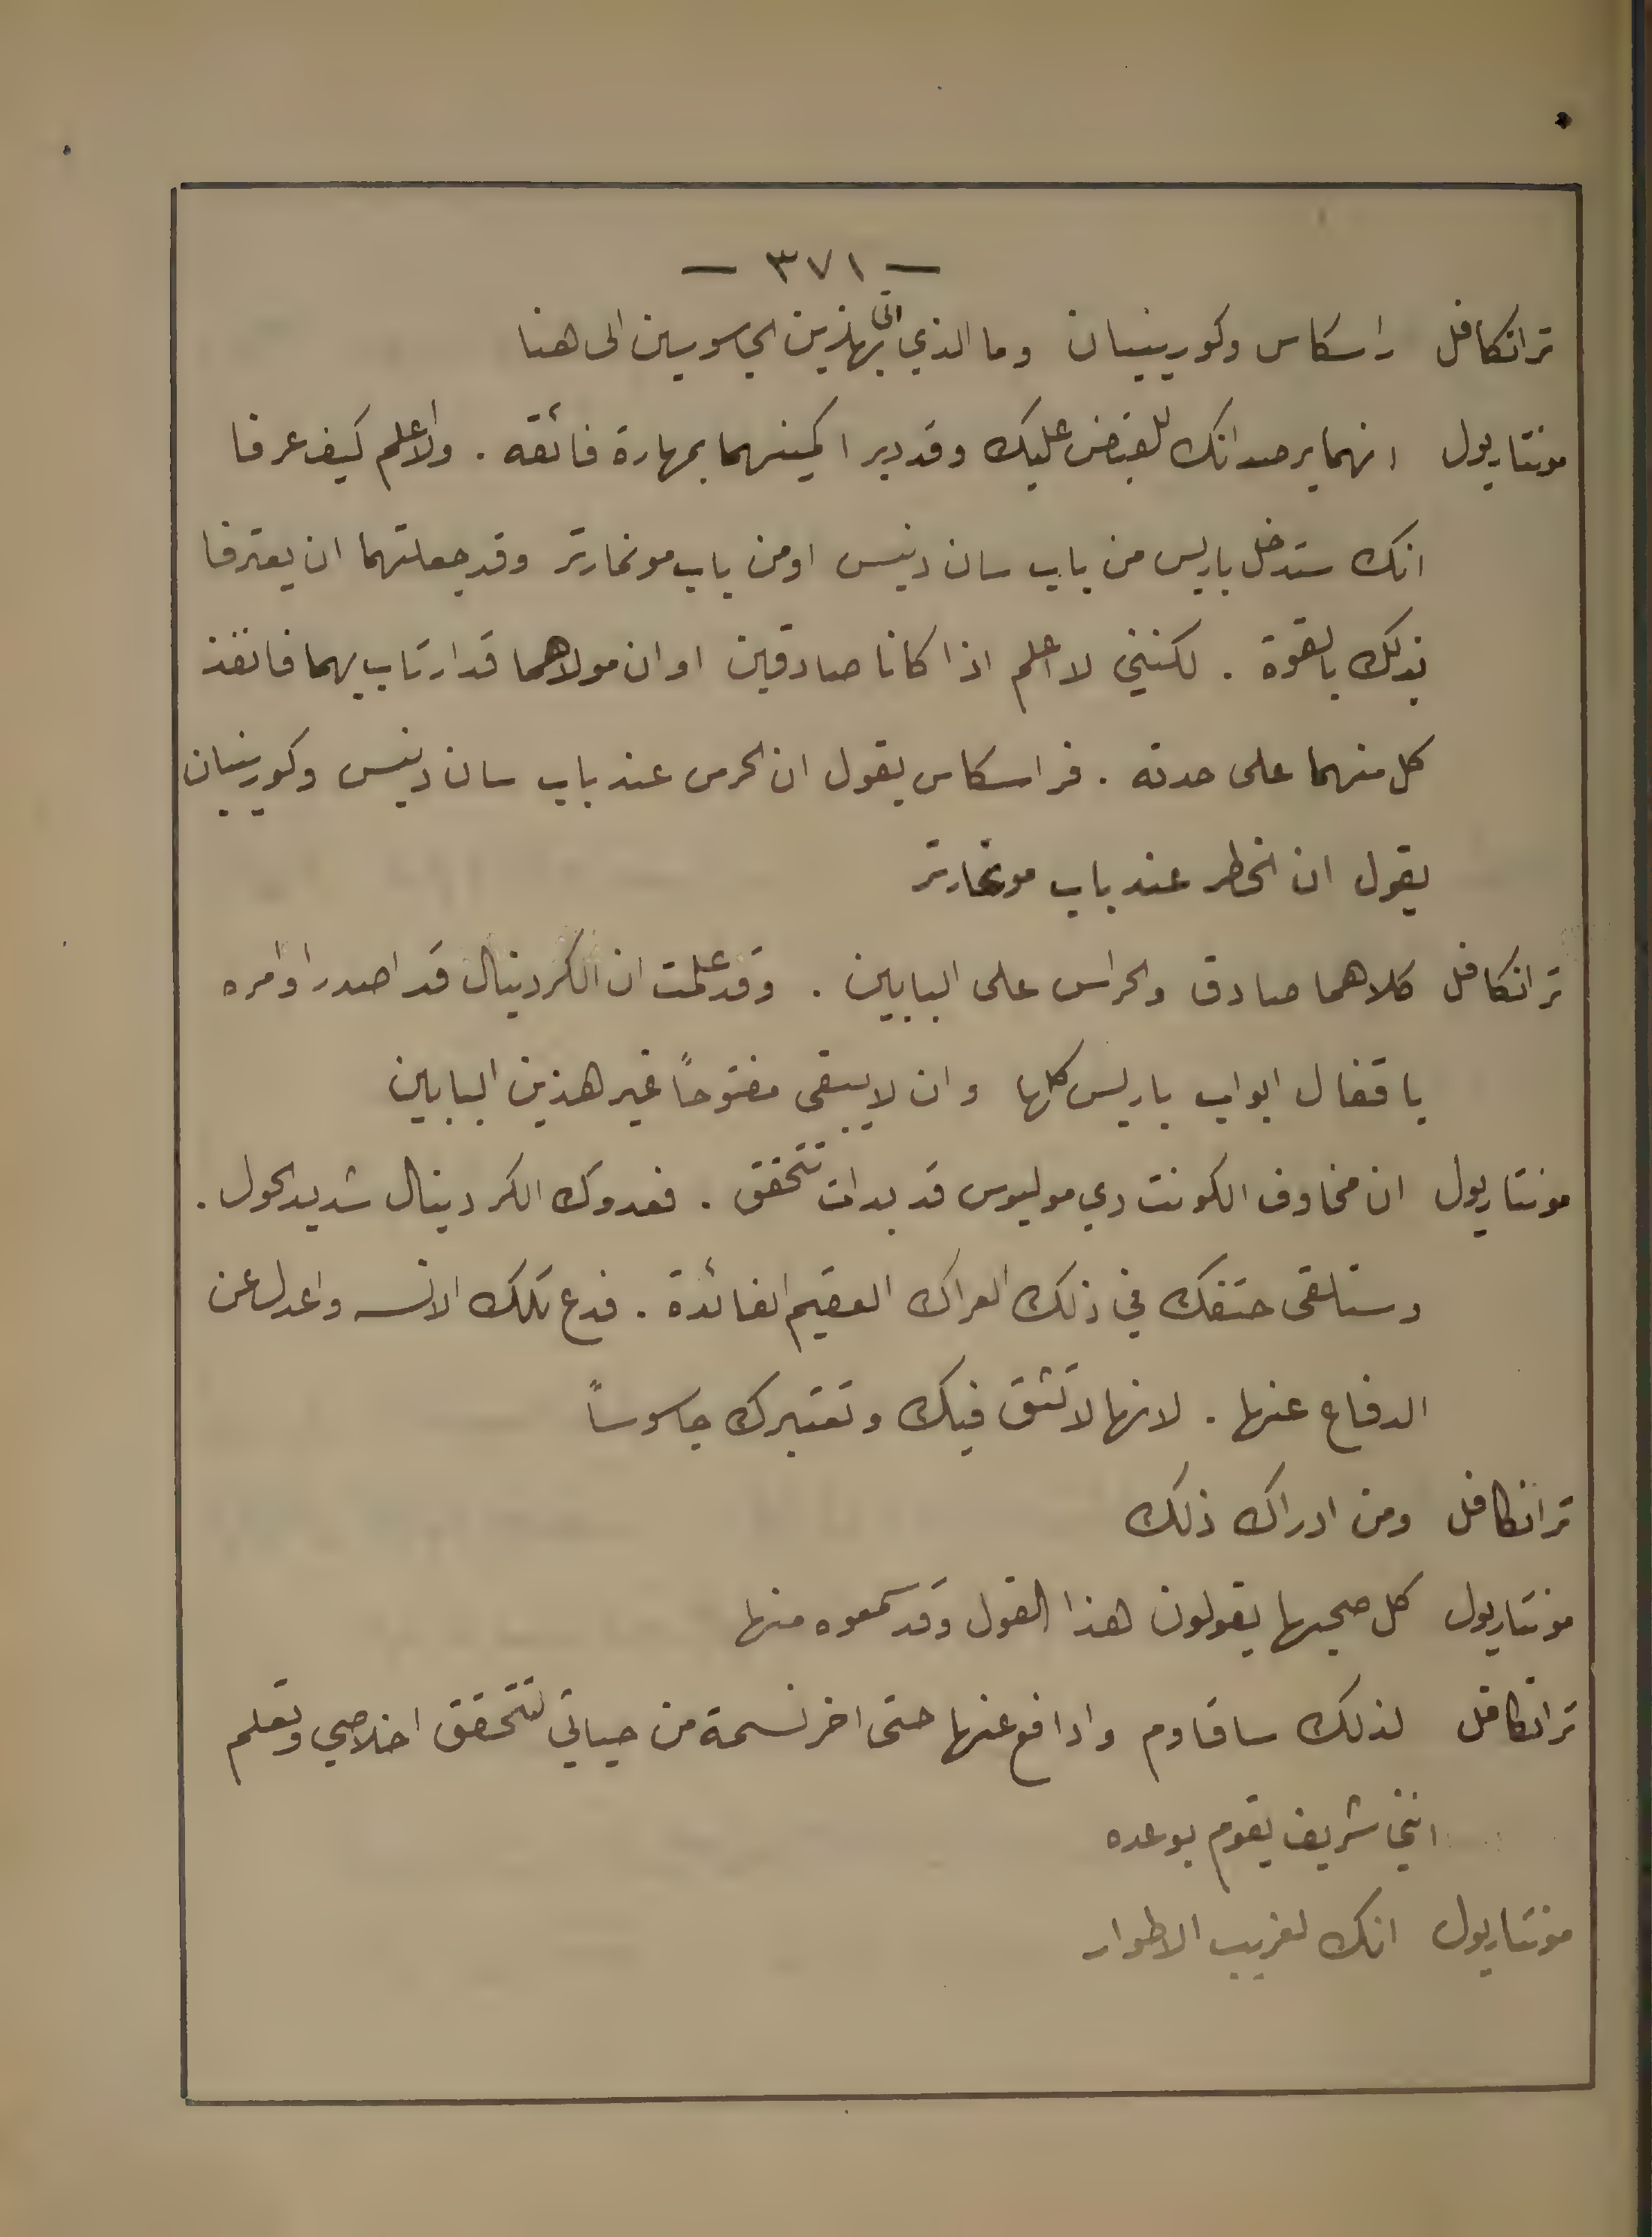 — ٣٧١ —
ترانكافل راسكاس وكورينيان وما الذي اتى بهاذين الجاسوسين الى هنا
مونتاريول انهما يرصدانك للقبض عليك وقد دبرا كمينهما بمهارة فائقه . ولا اعلم كيف عرفا
انك ستدخل باريس من باب سان دنيس او من باب مونمارتر وقد جعلتهما ان يعترفا
بذلك بالقوة . لكنني لا اعلم اذا كانا صادقين او ان مولاهما قد ارتاب بهما فانفذ
كل منهما على حدته . فراسكاس يقول ان الحرس عند باب سان دنيس وكورينيان
يقول ان الخطر عند باب مونمارتر
ترانكافل كلاهما صادق والحراس على البابين . وقد علمت ان الكردينال قد اصدر اوامره
باقفال ابواب باريس كلها وان لا يبقى مفتوحاً غير هذين البابين
مونتاريول ان مخاوف الكونت دي موليوس قد بدات تتحقق . فعدوك الكردينال شديد الحول .
وستلقى حتفك في ذلك العراك العقيم الفائدة . فدع تلك الانسه واعدل عن
الدفاع عنها . لانها لا تثق فيك وتعتبرك جاسوساً
ترانكافل ومن ادراك ذلك
مونتاريول كل صحبها يقولون هذا القول وقد سمعوه منها
ترانكافل لذلك ساقاوم وادافع عنها حتى اخر نسمة من حياتي لتتحقق اخلاصي وتعلم
انني شريف يقوم بوعده
مونتاريول انك لغريب الاطوار